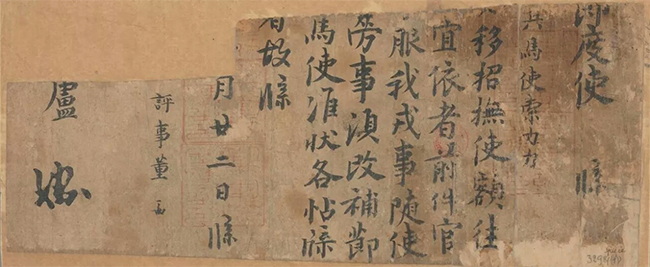 節度使 牒
兵馬使康力力
移招撫使額往
宜依者前件官
服我戎事随使
勞事湏改補節
馬使准状各帖牒
者故牒
月廿二日牒
評事董
盧